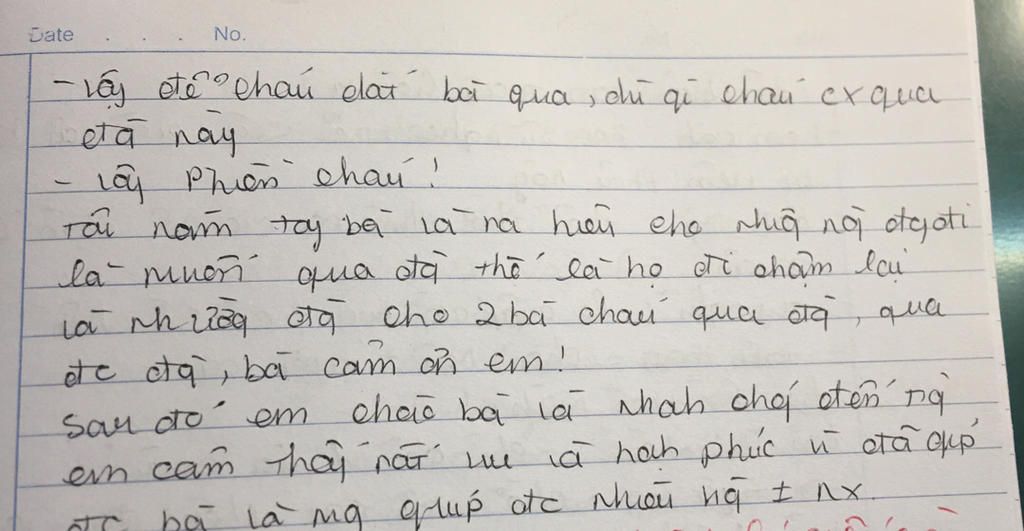 Date . . . No.
- vậy để cháu dắt bà qua, dù gì cháu cx qua
đg này
- vậy phiền cháu!
Tôi nắm tay bà và ra hiệu cho những ng đg đi
là muốn qua đg thế là họ đi chậm lại
và nhường đg cho 2 bà cháu qua đg, qua
đc đg, bà cảm ơn em!
Sau đó em chào bà và nhanh chóng đến
em cảm thấy rất vui và hạnh phúc vì đã giúp
đc bà và mg giúp đc nhiều ng ± nx.